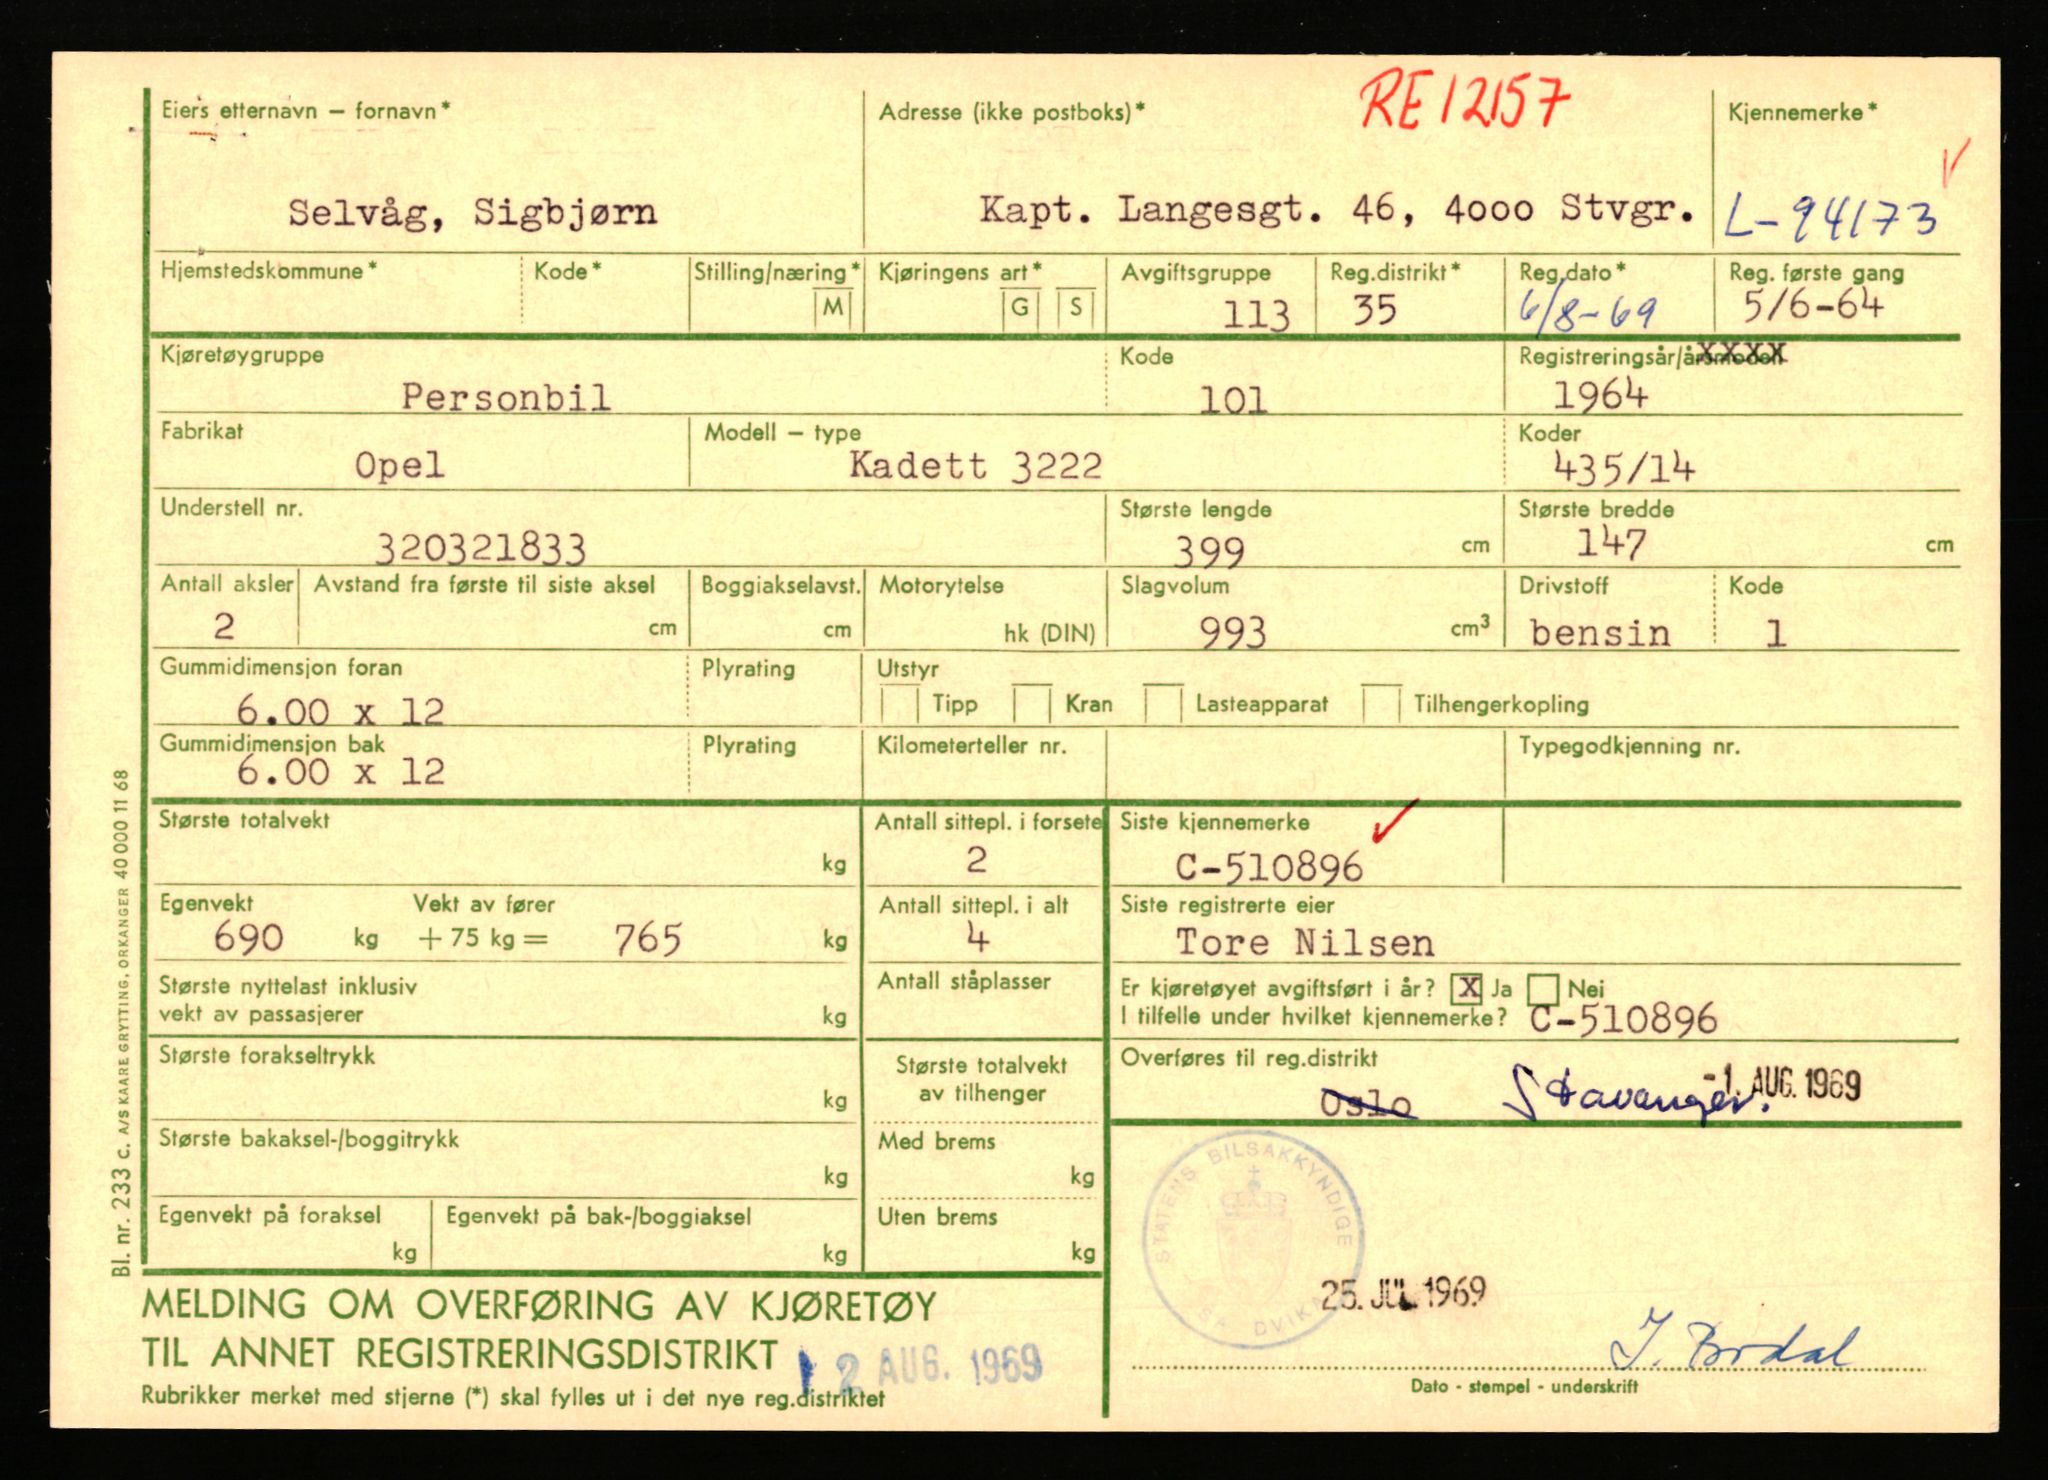 RE12157
Eiers etternavn – fornavn* Adresse (ikke postboks)* Kjennemerke*
Selvåg, Sigbjørn Kapt. Langesgt. 46, 4000 Stvgr. L-94173
Hjemstedskommune* Kode* Stilling/næring* Kjøringens art* Avgiftsgruppe Reg.distrikt* Reg.dato* Reg. første gang
M G S 113 35 6/8-69 5/6-64
Kjøretøygruppe Kode Registreringsår/årsmodell xxxx
Personbil 101 1964
Fabrikat Modell – type Koder
Opel Kadett 3222 435/14
Understell nr. Største lengde Største bredde
320321833 399 cm 147 cm
Antall aksler Avstand fra første til siste aksel Boggiakselavst. Motorytelse Slagvolum Drivstoff Kode
2 cm cm hk (DIN) 993 cm³ bensin 1
Gummidimensjon foran Plyrating Utstyr
6.00 x 12 Tipp Kran Lasteapparat Tilhengerkopling
Gummidimensjon bak Plyrating Kilometerteller nr. Typegodkjenning nr.
6.00 x 12
Største totalvekt Antall sittepl. i forsete Siste kjennemerke
kg 2 C-510896
Egenvekt Vekt av fører Antall sittepl. i alt Siste registrerte eier
690 kg + 75 kg = 765 kg 4 Tore Nilsen
Største nyttelast inklusiv Antall ståplasser Er kjøretøyet avgiftsført i år? X Ja Nei
vekt av passasjerer kg I tilfelle under hvilket kjennemerke? C-510896
Største forakseltrykk Største totalvekt Overføres til reg.distrikt
kg av tilhenger Oslo Stavanger. -1. AUG. 1969
Største bakaksel-/boggitrykk Med brems
kg kg
STATENS BILSAKKYNDIGE
Egenvekt på foraksel Egenvekt på bak-/boggiaksel Uten brems
kg kg kg
25. JUL 1969
MELDING OM OVERFØRING AV KJØRETØY
TIL ANNET REGISTRERINGSDISTRIKT 12 AUG. 1969
J. Brdal
Rubrikker merket med stjerne (*) skal fylles ut i det nye reg.distriktet
Dato - stempel - underskrift
Bl. nr. 233 c. A/S KAARE GRYTTING, ORKANGER 40 000 11 68